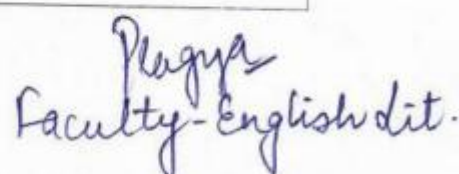 Pragya
Faculty-English Lit.